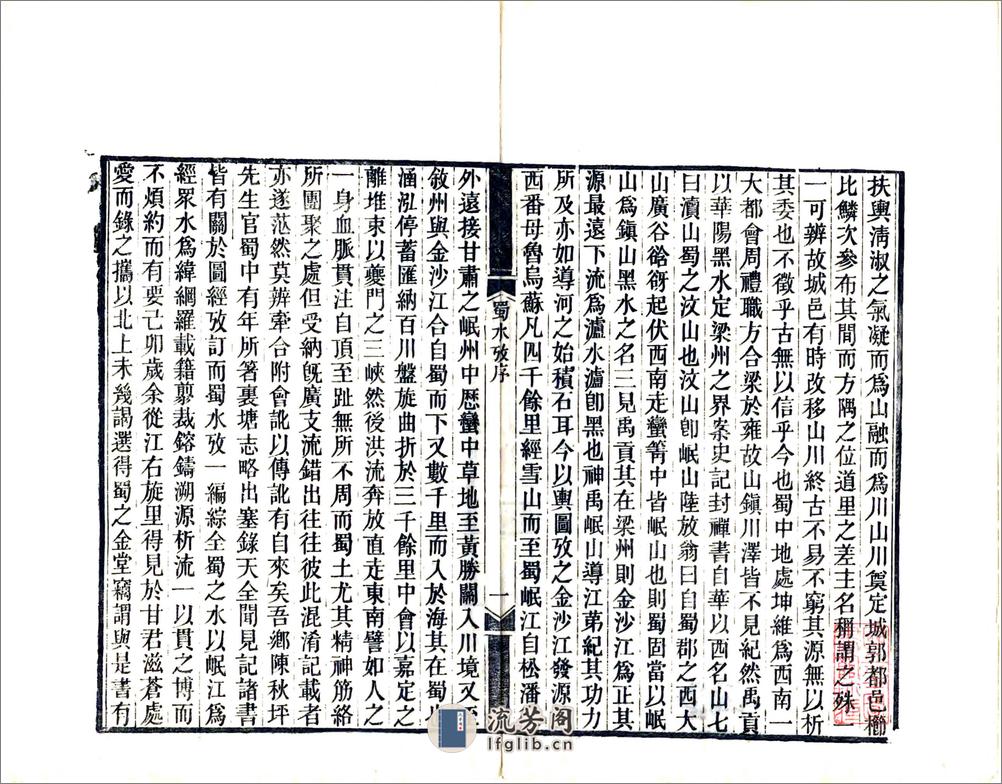 扶輿淸淑之氣凝而爲山融而爲川山川奠定城郭都邑櫛
比鱗次參布其間而方隅之位道里之差主名稱謂之殊
一可辨故城邑有時改移山川終古不易不窮其源無以析
其委也不徵乎古無以信乎今也蜀中地處坤維爲西南一
大都會周禮職方合梁於雍故山鎭川澤皆不見紀然禹貢
以華陽黑水定梁州之界案史記封禪書自華以西名山七
曰瀆山蜀之汶山也汶山卽岷山陸放翁曰自蜀郡之西大
山廣谷谽谺起伏西南走蠻箐中皆岷山也則蜀固當以岷
山爲鎭山黑水之名三見禹貢其在梁州則金沙江爲正其
源最遠下流爲瀘水瀘卽黑也神禹岷山導江第紀其功力
所及亦如導河之始積石耳今以輿圖攷之金沙江發源
西番母魯烏蘇凡四千餘里經雪山而至蜀岷江自松潘
蜀水攷序
一
外遠接甘肅之岷州中歷蠻中草地至黃勝關入川境又至
敘州與金沙江合自蜀而下又數千里而入於海其在蜀
涵泓停蓄匯納百川盤旋曲折於三千餘里中會以嘉定之
離堆束以夔門之三峽然後洪流奔放直走東南譬如人之
一身血脈貫注自頂至趾無所不周而蜀土尤其精神筋絡
所團聚之處但受納旣廣支流錯出往往彼此混淆記載者
亦遂茫然莫辨牽合附會訛以傳訛有自來矣吾鄉陳秋坪
先生官蜀中有年所箸裏塘志略出塞錄天全聞見記諸書
皆有關於圖經攷訂而蜀水攷一編綜全蜀之水以岷江爲
經眾水爲緯綱羅載籍翦裁鎔鑄溯源析流一以貫之博而
不煩約而有要己卯歲余從江右旋里得見於甘君滋蒼處
愛而錄之攜以北上未幾謁選得蜀之金堂竊謂與是書有
流芳阁
lfglib.cn